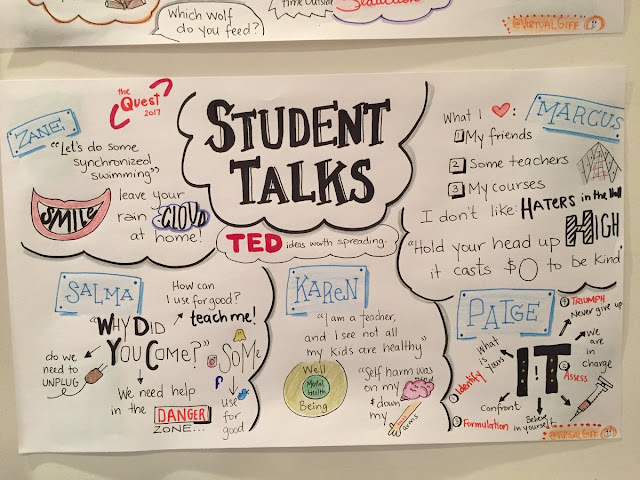 Which Wolf
do you feed?
time outside
Seduction
@VIRTUALGIFF
the
Quest
2017
STUDENT
TALKS
TED ideas worth spreading.
ZANE
"Let's do some
synchronized
swimming"
SMILE
leave your
rain CLOUD
at home!
What I ♥:
MARCUS
1 My friends
2 Some teachers
3 My courses
I don't like: HATERS in the Hall
"Hold your head up HIGH
it casts $0 to be kind"
SALMA
How can
I use for good?
teach me!
"WHY DID
YOU COME?"
do we
need to
UNPLUG
We need help
in the DANGER
ZONE...
SOMe
use
for
good
KAREN
"I am a teacher,
and I see not all
my kids are healthy"
Well
Mental
health
Being
"Self harm was
on my
& down
my
arms
PAIGE
IT
What
is
Yours
Identify
Confront
Formulation
Believe
in yourself
Assess
We
are
in
charge
TRIUMPH
Never give up
@VIRTUALGIFF